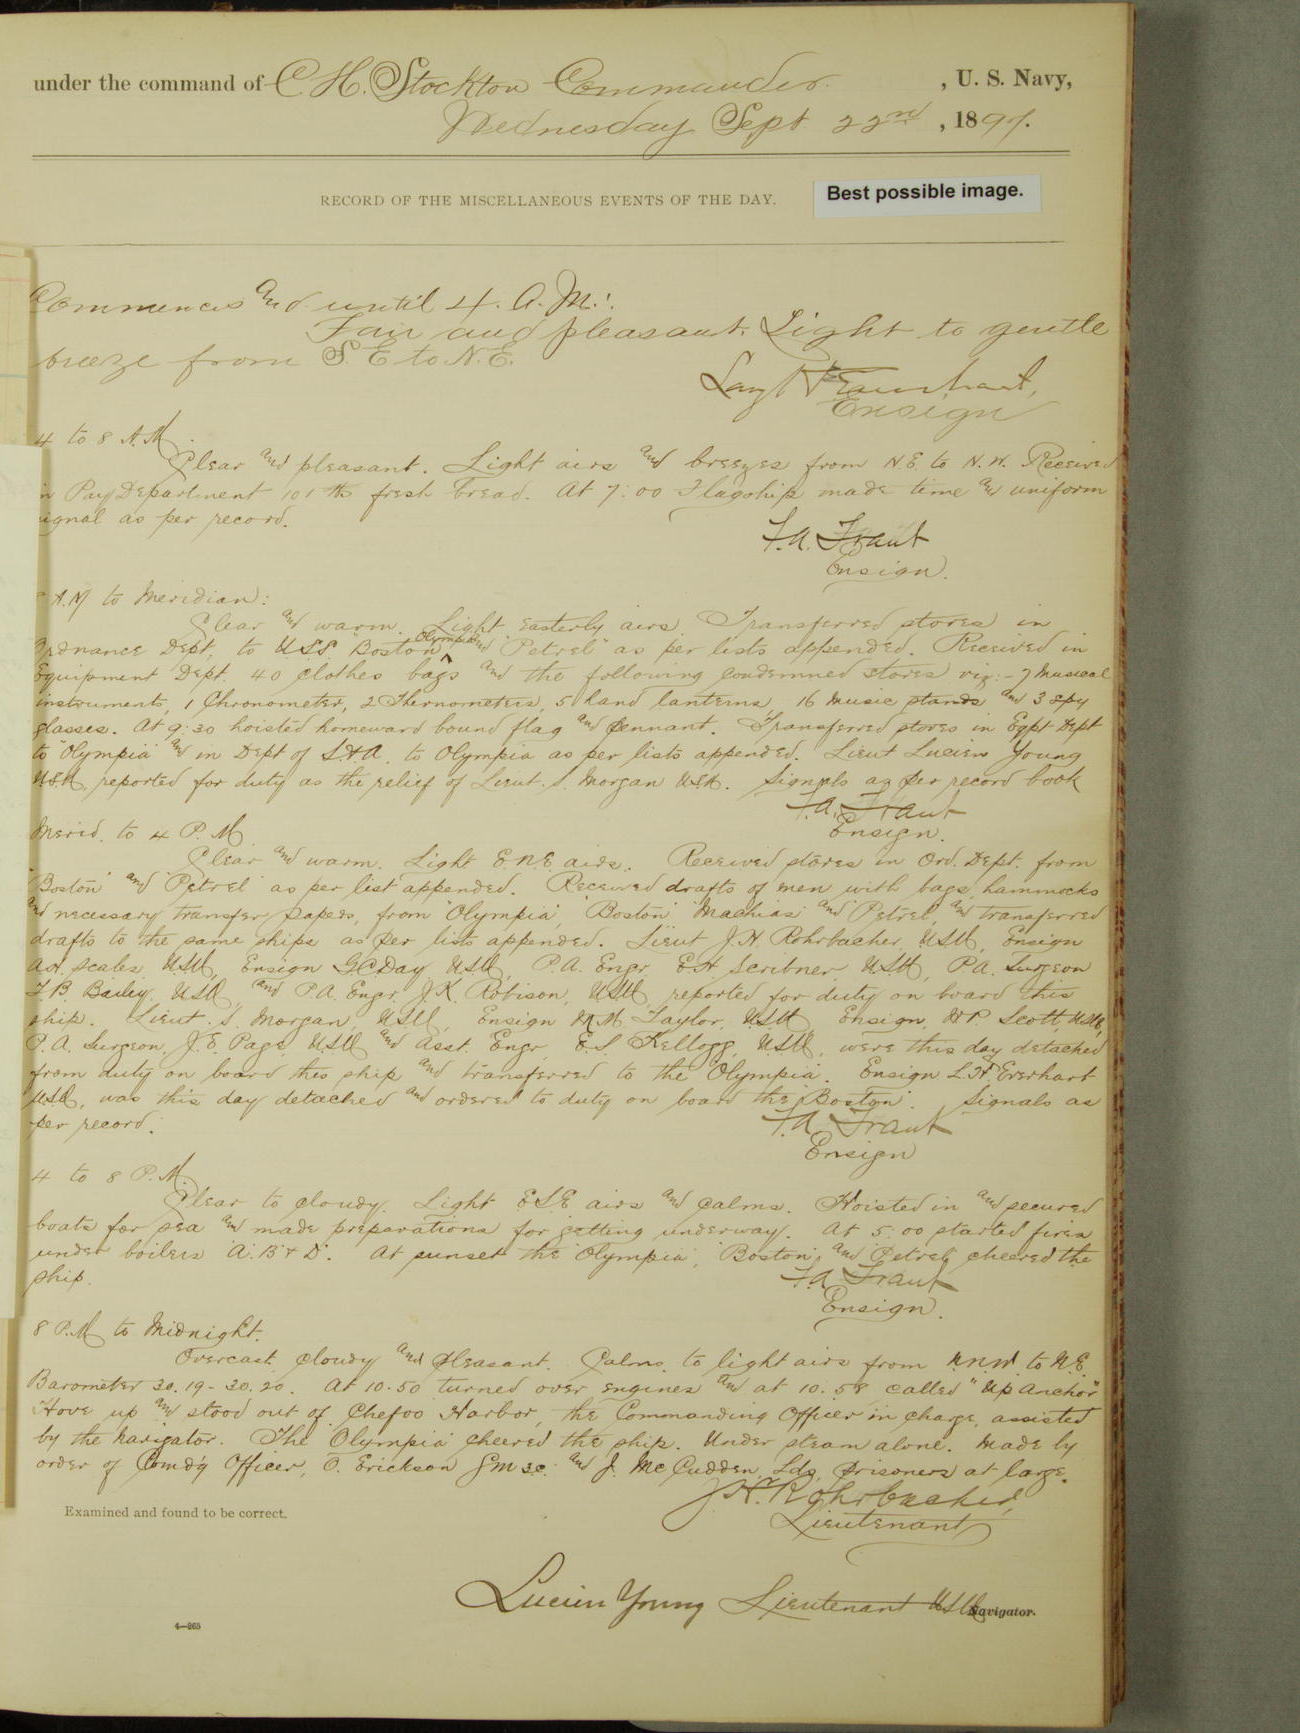 under the command of C. H. Stockton Commander. , U. S. Navy,
Wednesday Sept 22nd , 1897.
RECORD OF THE MISCELLANEOUS EVENTS OF THE DAY.
Best possible image.
Commences and until 4. A. M.:
Fair and pleasant. Light to gentle
breeze from S. E to N. E.
Everhart,
Ensign
4 to 8 A. M.
Clear and pleasant. Light airs and breezes from N. E. to N. W. Received
in Pay Department 101 lbs fresh bread. At 7:00 Flagship made time and uniform
signal as per record.
F. A. Traut
Ensign.
A. M to Meridian:
Clear and warm. Light easterly airs. Transferred stores in
Ordnance Dept. to U.S.S. "Boston" "Olympia" and "Petrel" as per lists appended. Received in
Equipment Dept. 40 clothes bags and the following condemned stores viz:- 7 Musical
instruments, 1 Chronometer, 2 Thermometers, 5 hand lanterns, 16 music stands and 3 spy
glasses. At 9:30 hoisted homeward bound flag and pennant. Transferred stores in Eqpt Dept
to "Olympia" and in Dept of S. & A. to Olympia as per lists appended. Lieut Lucien Young
U.S.N. reported for duty as the relief of Lieut. S. Morgan U.S.N. Signals as per record book
F. A. Traut
Ensign.
Merid. to 4 P. M
Clear and warm. Light E.N.E. airs. Received stores in Ord. Dept. from
"Boston" and "Petrel" as per list appended. Received drafts of men with bags, hammocks
and necessary transfer papers, from "Olympia", "Boston" "Machias" and "Petrel", and transferred
drafts to the same ships as per lists appended. Lieut J. H. Rohrbacher, U.S.N., Ensign
A. H. Scales, U.S.N., Ensign G. C. Day U.S.N., P. A. Engr. E. H. Scribner U.S.N, P.A. Surgeon
T. B. Bailey, U.S.N., and P. A. Engr. J. K. Robison, U.S.N., reported for duty on board this
ship. Lieut. S. Morgan, U.S.N., Ensign M. M. Taylor, U.S.N. Ensign, W. P. Scott, U.S.N.,
P. A. Surgeon, J. E. Page, U.S.N. and Asst. Engr. E. S. Kellogg, U.S.N., were this day detached
from duty on board this ship and transferred to the "Olympia". Ensign L. H. Everhart
U.S.N., was this day detached and ordered to duty on board the "Boston". Signals as
per record.
F. A. Traut
Ensign
4 to 8 P. M.
Clear to cloudy. Light E.S.E airs and calms. Hoisted in and secured
boats for sea and made preparations for getting underway. At 5:00 started fires
under boilers A. B & D. At sunset the "Olympia", "Boston", and "Petrel" cheered the
ship.
F. A. Traut
Ensign.
8 P. M to Midnight.
Overcast cloudy and pleasant. Calms, to light airs from N.N.W to N.E.
Barometer 30.19 - 30.20. At 10.50 turned over engines and at 10.58 called "Up Anchor"
Hove up and stood out of Chefoo Harbor, the Commanding Officer in charge, assisted
by the Navigator. The "Olympia" cheered the ship. Under steam alone. Made by
order of Comd'g Officer, O. Erickson G.M 3c. and J. Mc Cudden, Lds, prisoners at large.
J. H. Rohrbacher,
Lieutenant
Examined and found to be correct.
Lucien Young Lieutenant U.S.N.
Navigator.
4—265